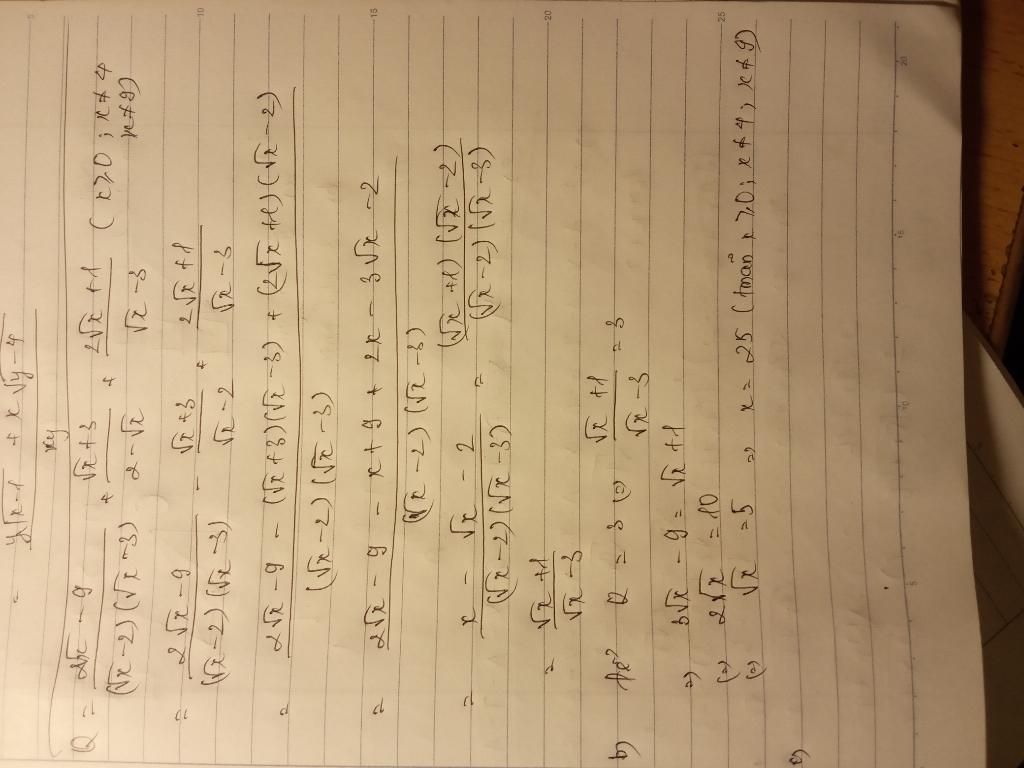 = y√x-1 + x√y-4 / xy
Q = 2√x - 9 / (√x - 2)(√x - 3) + √x + 3 / 2 - √x + 2√x + 1 / √x - 3 (x ≥ 0 ; x ≠ 4
x ≠ 9)
= 2√x - 9 / (√x - 2)(√x - 3) - √x + 3 / √x - 2 + 2√x + 1 / √x - 3
= 2√x - 9 - (√x + 3)(√x - 3) + (2√x + 1)(√x - 2) / (√x - 2)(√x - 3)
= 2√x - 9 - x + 9 + 2x - 3√x - 2 / (√x - 2)(√x - 3)
= x - √x - 2 / (√x - 2)(√x - 3) = (√x + 1)(√x - 2) / (√x - 2)(√x - 3)
= √x + 1 / √x - 3
b) Q = 3 (=) √x + 1 / √x - 3 = 3
=) 3√x - 9 = √x + 1
(=) 2√x = 10
(=) √x = 5 =) x = 25 (tmãn x ≥ 0 ; x ≠ 4 ; x ≠ 9)
c)
5
10
15
20
25
5
10
15
20